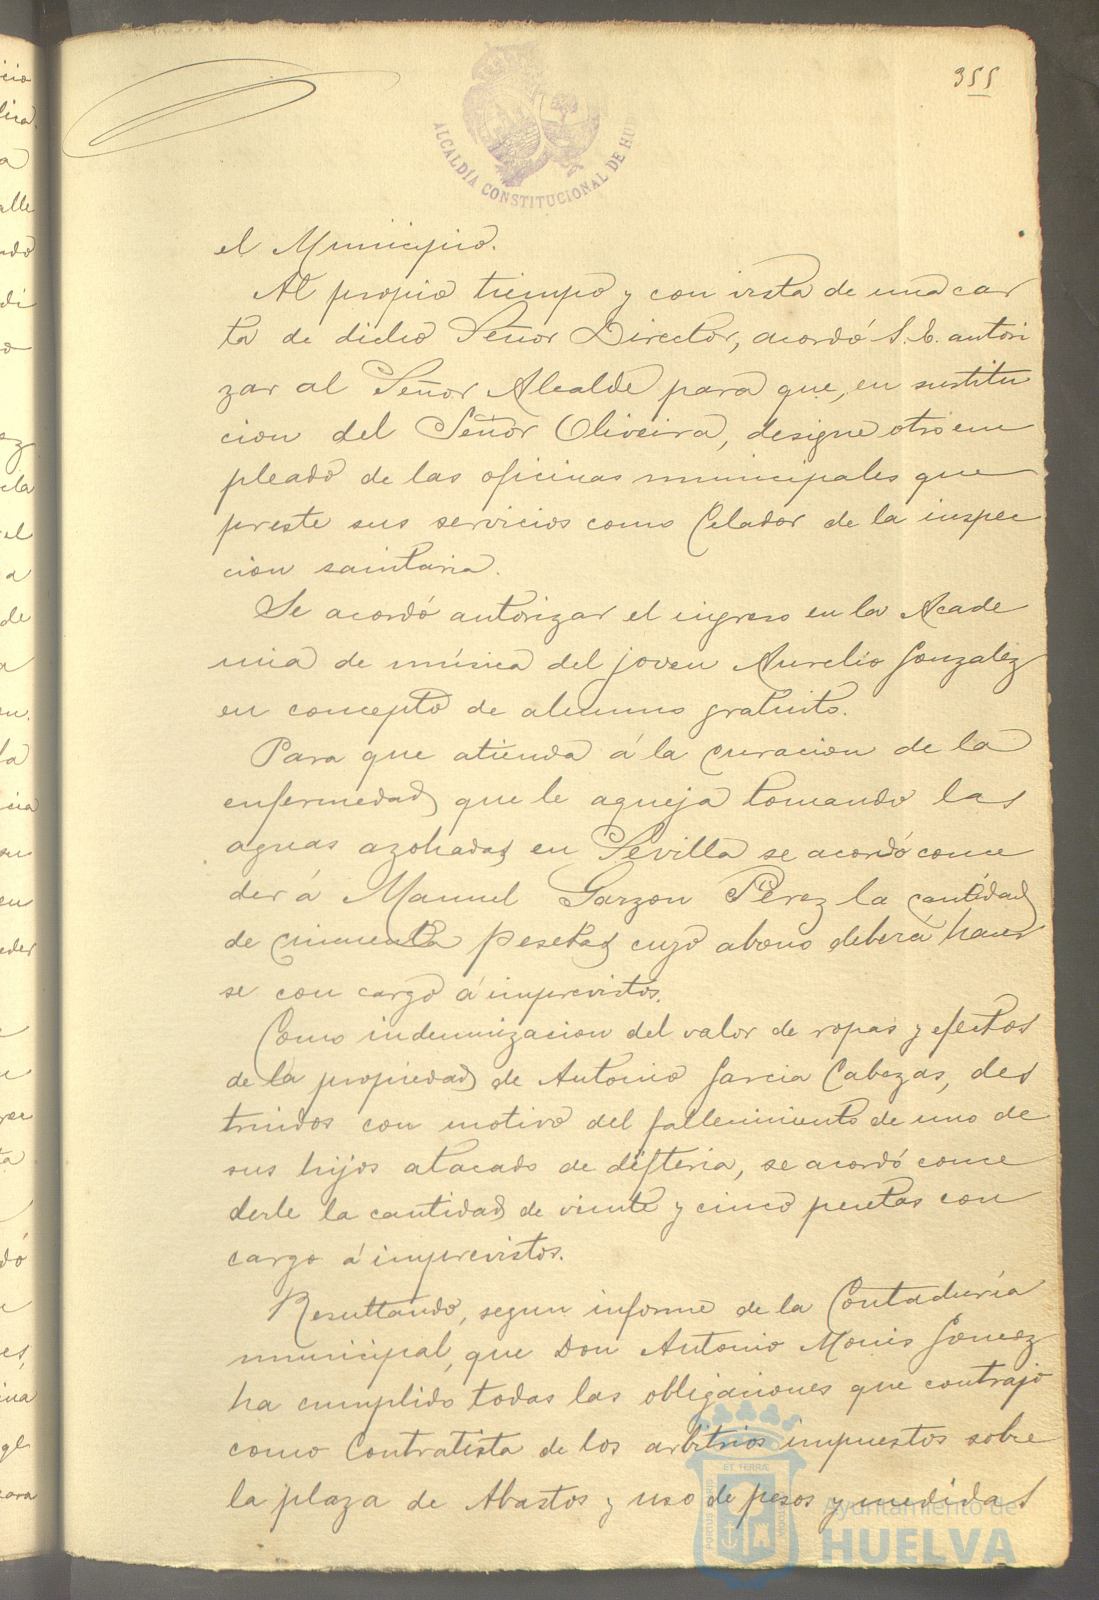 355
ALCALDÍA CONSTITUCIONAL DE HU
el Municipio.
Al propio tiempo y con vista de una car
ta de dicho Señor Director, acordó S. E. autori
zar al Señor Alcalde para que, en sustitu
cion del Señor Oliveira, designe otro em
pleado de las oficinas municipales que
preste sus servicios como Celador de la inspec
cion sanitaria.
Se acordó autorizar el ingreso en la Acade
mia de música del joven Aurelio Gonzalez
en concepto de alumno gratuito.
Para que atienda á la curacion de la
enfermedad que le aqueja tomando las
aguas azohadas en Sevilla se acordó conce
der á Manuel Garzon Pérez la cantidad
de cincuenta pesetas cuyo abono deberá hacer
se con cargo á imprevistos.
Como indemnizacion del valor de ropas y efectos
de la propiedad de Antonio Garcia Cabezas, des
truidos con motivo del fallecimiento de uno de
sus hijos atacado de difteria, se acordó conce
derle la cantidad de veinte y cinco pesetas con
cargo á imprevistos.
Resultando, segun informe de la Contaduría
municipal, que Don Antonio Monis Gomez
ha cumplido todas las obligaciones que contrajo
como Contratista de los arbitrios impuestos sobre
la plaza de Abastos y uso de pesos y medidas
Ayuntamiento de
HUELVA